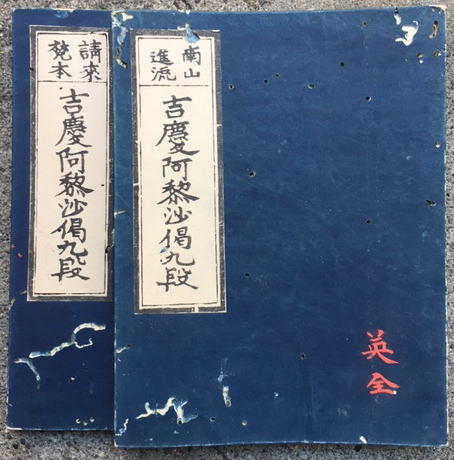 南山
進流
吉慶阿黎沙偈九段
英全
請來
梵本
吉慶阿黎沙偈九段